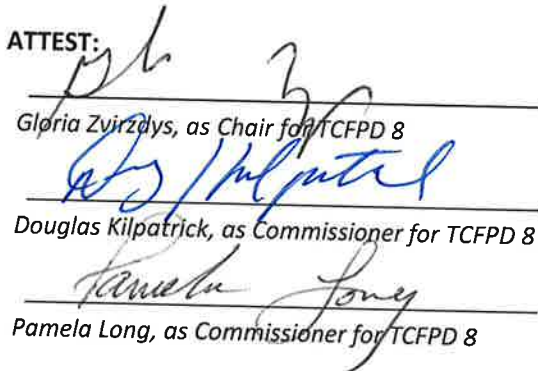 ATTEST:
Gloria Zvirzdys, as Chair for TCFPD 8
Douglas Kilpatrick, as Commissioner for TCFPD 8
Pamela Long
Pamela Long, as Commissioner for TCFPD 8